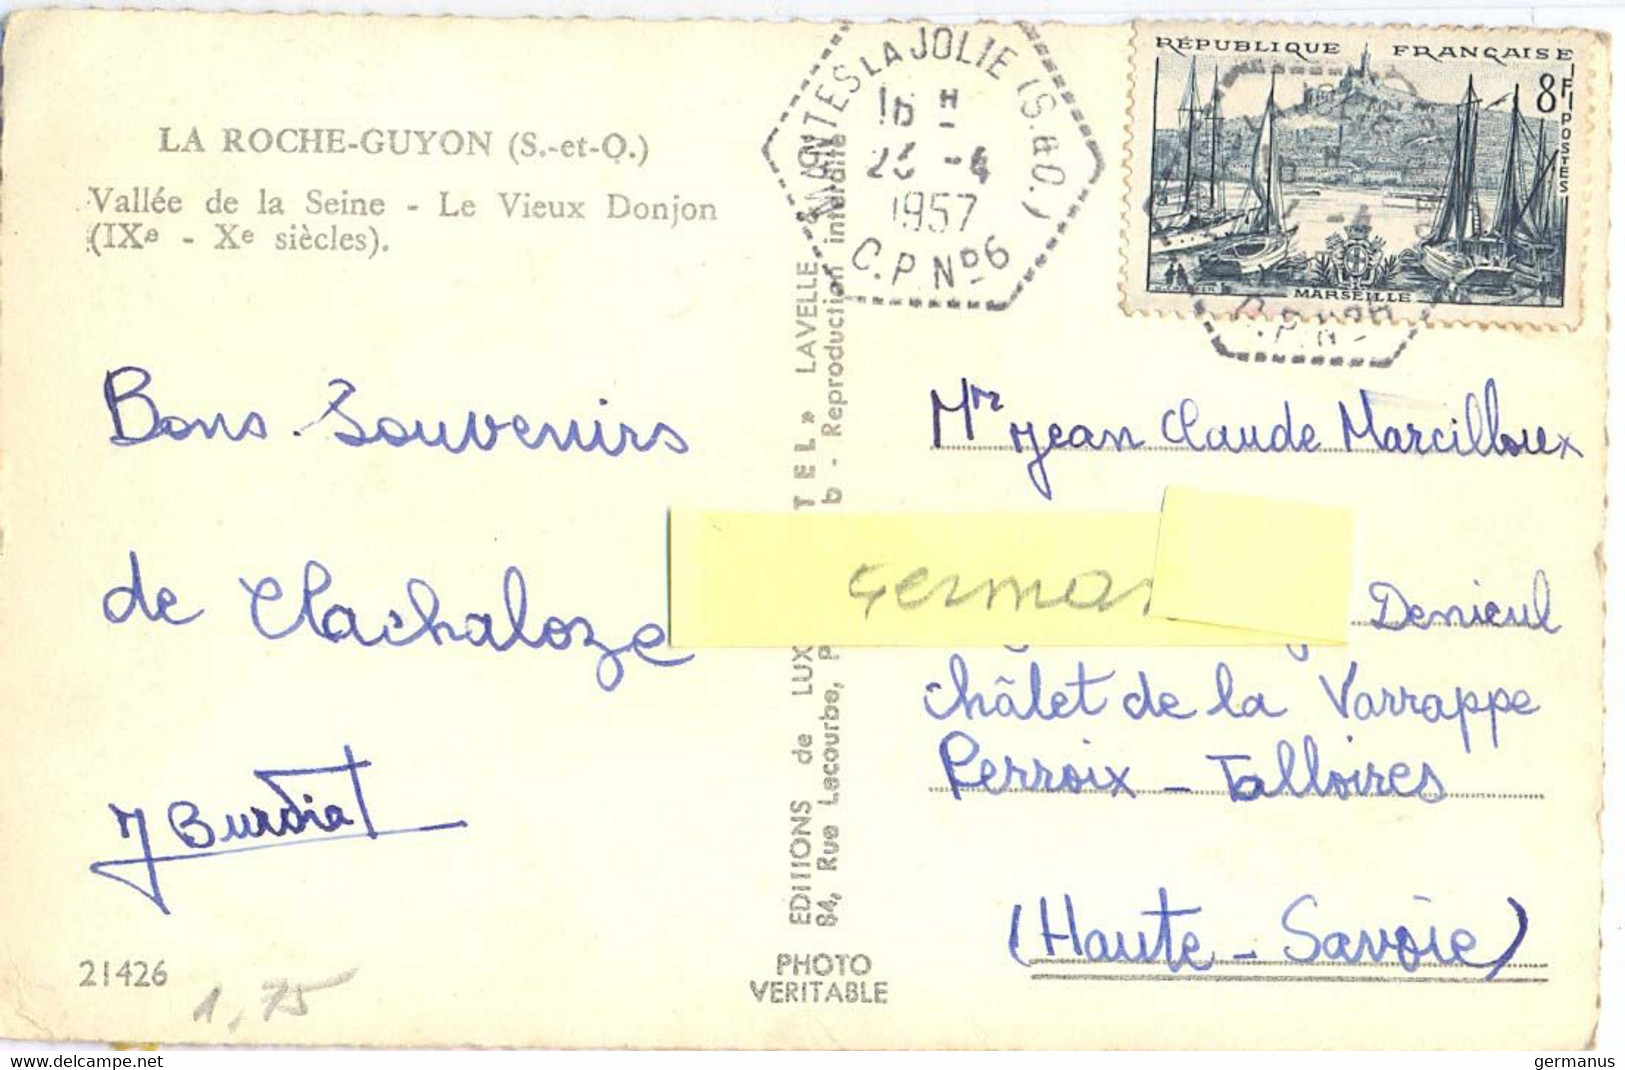 LA ROCHE-GUYON (S.-et-O.)
Vallée de la Seine - Le Vieux Donjon
(IXe - Xe siècles).
Bons Souvenirs
de Clachaloze
J Burdiat
21426
1,75
EDITIONS de LUX
TEL » LAVELLE
84, Rue Lecourbe, P
b - Reproduction interdite
PHOTO
VERITABLE
MANTES LA JOLIE (S.&O.)
16 H
23 -4
1957
C.P.No6
RÉPUBLIQUE FRANÇAISE
8F
POSTES
MARSEILLE
Mr Jean Claude Marcilloux
German
Denieul
Châlet de la Varrappe
Perroix - Talloires
(Haute-Savoie)
germanus